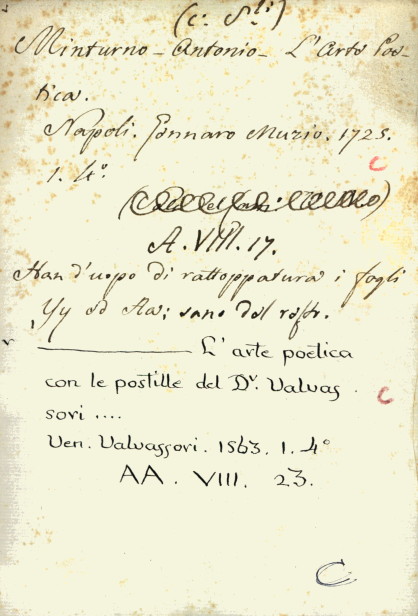 (c. S.ti)
Minturno - Antonio - L'Arte Poe-
tica.
Napoli. Gennaro Muzio. 1725.
C
1. 4°.
A. VIII. 17.
Han d'uopo di rattoppatura i fogli
Yy ed Aa; sano del resto.
L'arte poetica
con le postille del Dr. Valvas
C
sori ....
Ven. Valvassori. 1563. 1. 4°
AA. VIII. 23.
C